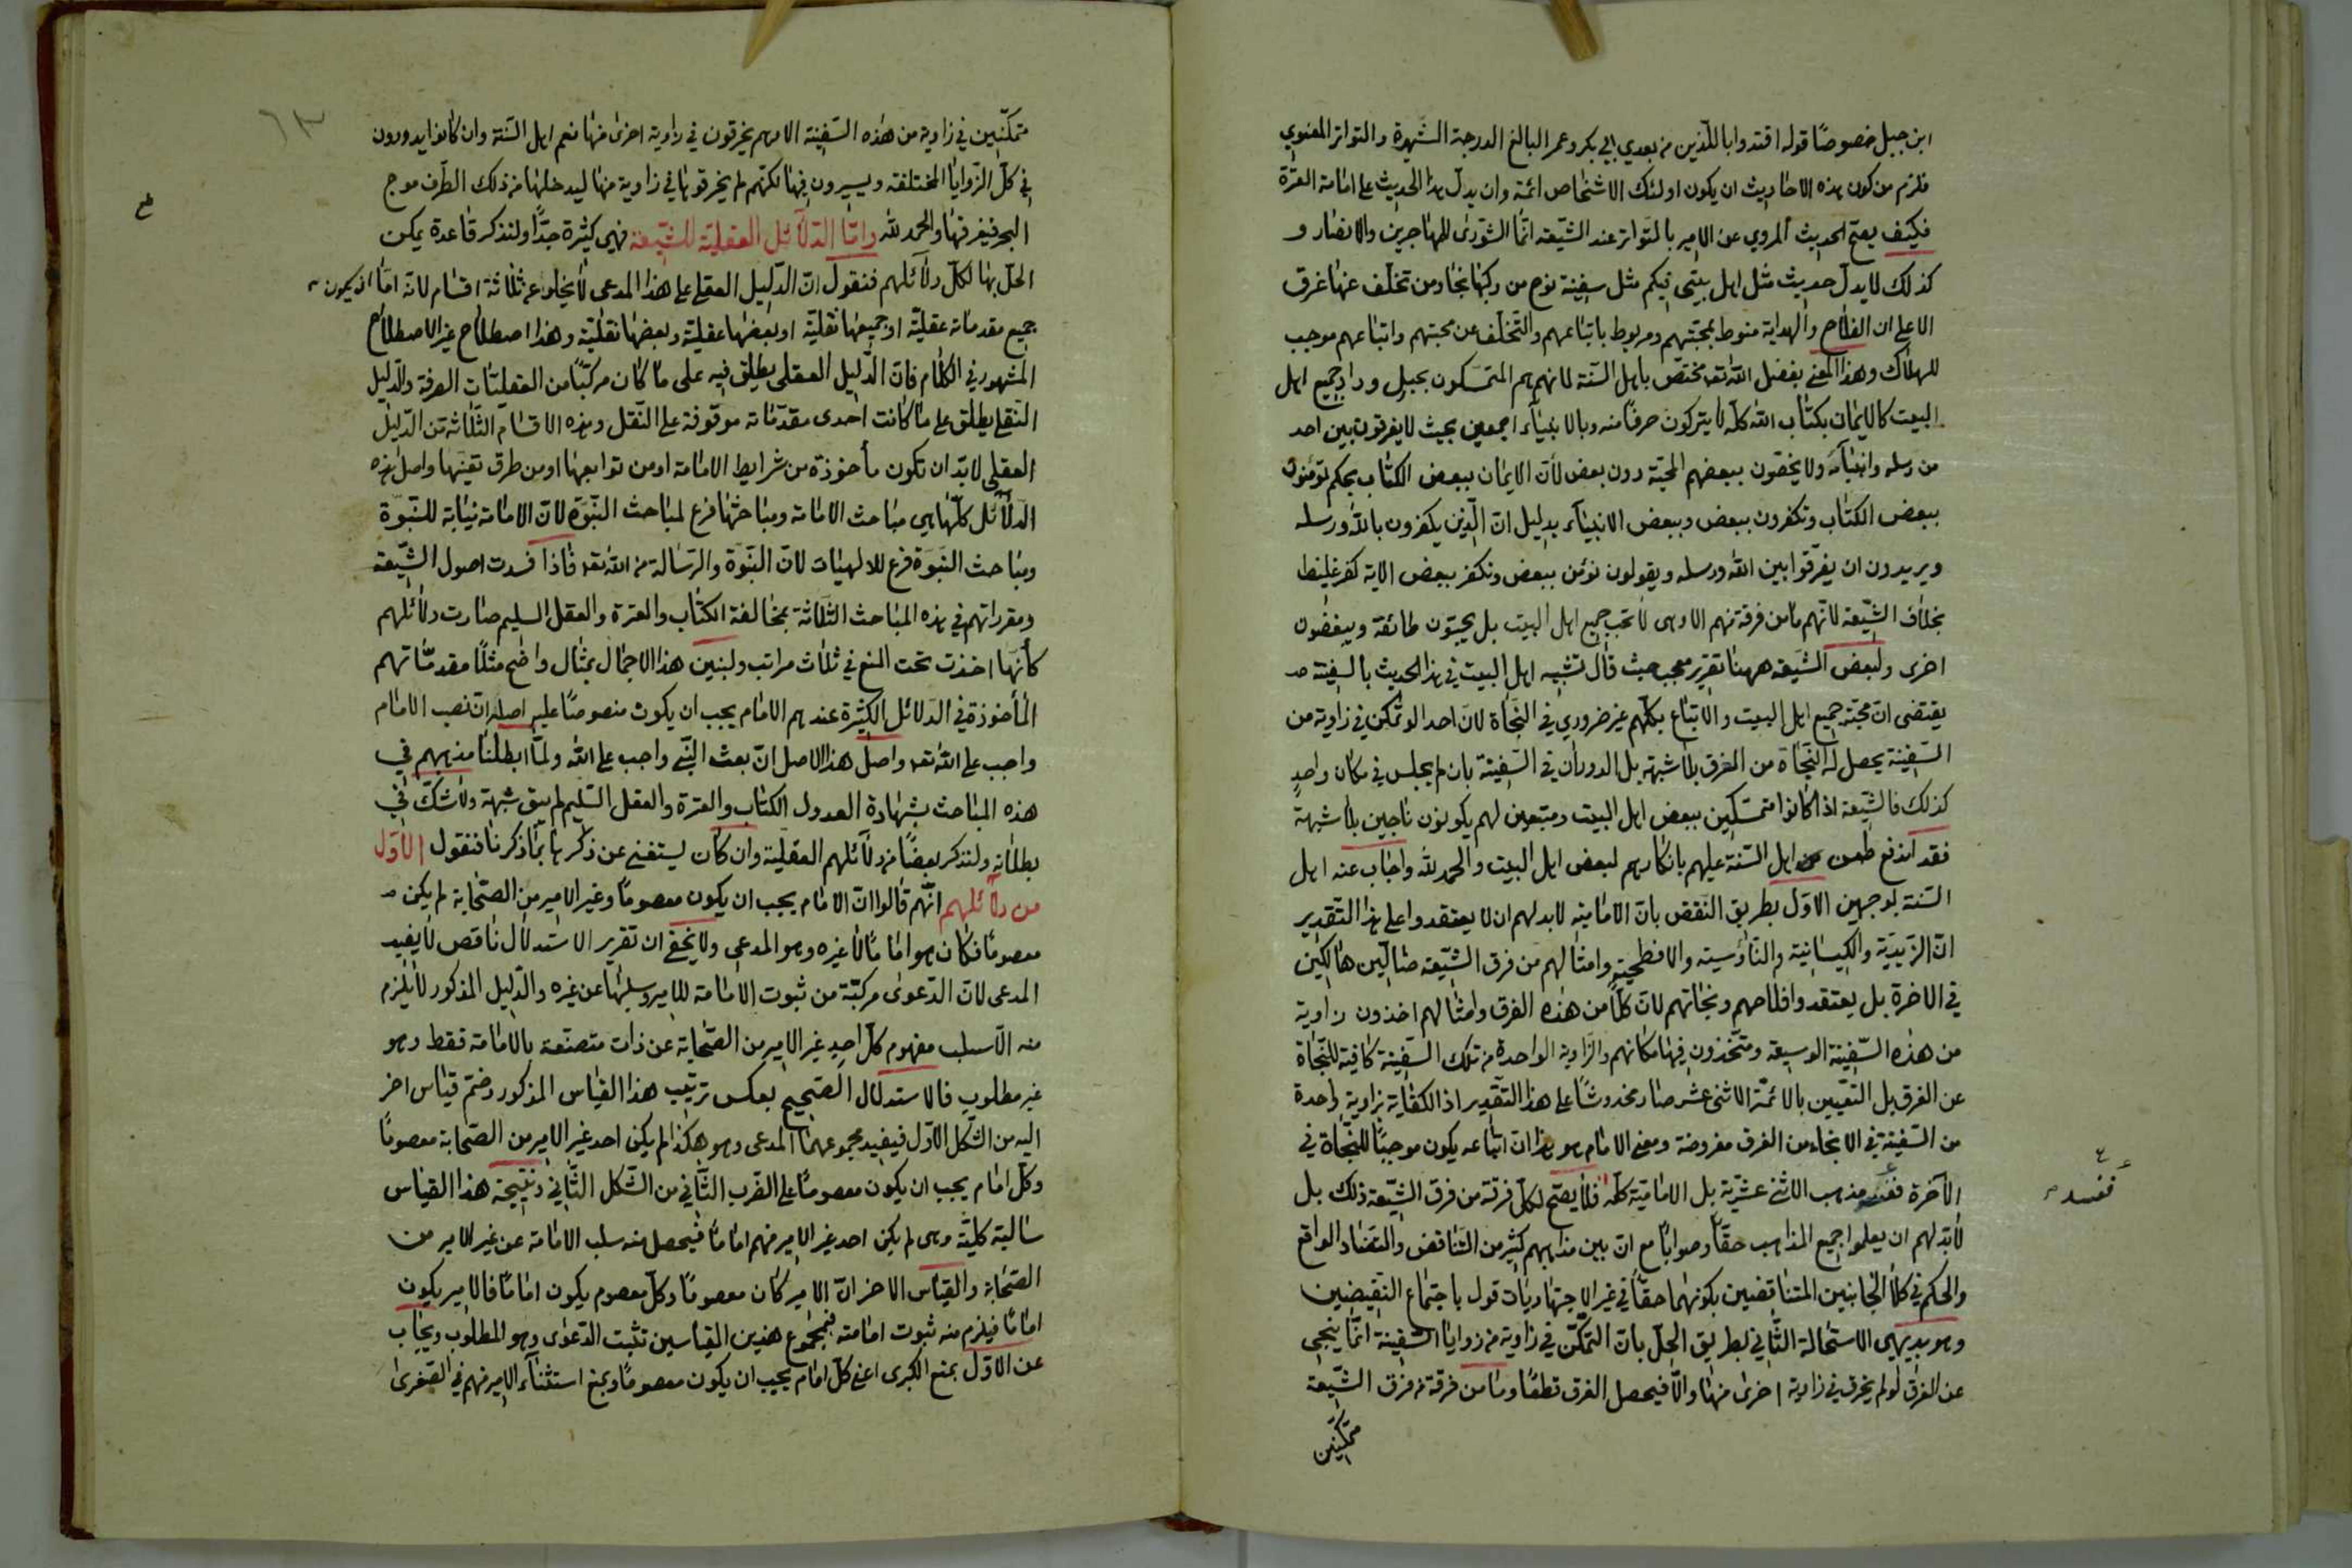 ابن جبل خصوصًا قوله اقتدوا باللذين من بعدي ابي بكر وعمر البالغ الدرجة الشهرة والتواتر المعنوي
فلزم من كون هذه الاحاديث ان يكون اولئك الاشخاص ائمة وان يدل هذا الحديث على امامة العترة
فكيف يصح الحديث المروي عن الامير بالتواتر عند الشيعة انما الشورى للمهاجرين والانصار و
كذلك لا يدل حديث مثل اهل بيتي فيكم مثل سفينة نوح من ركبها نجا ومن تخلف عنها غرق
الا على ان الفلاح والهداية منوط بمحبتهم ومربوط باتباعهم والتخلف عن محبتهم واتباعهم موجب
للهلاك وهذا المعنى بفضل الله تعه مختص باهل السنة لانهم هم المتمسكون بحبل وداد جميع اهل
البيت كالايمان بكتاب الله كله لا يتركون حرفًا منه وبالانبياء اجمعين بحيث لا يفرقون بين احد
من رسله وانبيائه ولا يخصون ببعضهم المحبة دون بعض لان الايمان ببعض الكتاب بحكم تؤمنون
ببعض الكتاب وتكفرون ببعض وببعض الانبياء بدليل ان الذين يكفرون بالله ورسله
ويريدون ان يفرقوا بين الله ورسله ويقولون نؤمن ببعض ونكفر ببعض الاية كفر غليظ
بخلاف الشيعة لانهم ما من فرقة منهم الا وهى لا تحب جميع اهل البيت بل يحبون طائفة ويبغضون
اخرى ولبعض الشيعة ههنا تقرير عجيب حيث قال تشبيه اهل البيت في هذا الحديث بالسفينة
يقتضى ان محبة جميع اهل البيت والاتباع بكلهم غير ضروري في النجاة لان احدا لو تمكن في زاوية من
السفينة يحصل له النجاة من الغرق بلا شبهة بل الدوران في السفينة بان لم يجلس في مكان واحد
كذلك فالشيعة اذا كانوا متمسكين ببعض اهل البيت ومتبعين لهم يكونون ناجين بلا شبهة
فقد اندفع طعن اهل السنة عليهم بانكارهم لبعض اهل البيت والحمد لله واجاب عنه اهل
السنة بوجهين الاول بطريق النقض بان الامامية لابد لهم ان لا يعتقدوا على هذا التقدير
ان الزيدية والكيسانية والناؤسية والافطحية وامثالهم من فرق الشيعة ضالين هالكين
في الاخرة بل يعتقدوا فلاحهم ونجاتهم لان كلًا من هذه الفرق وامثالهم اخذون زاوية
من هذه السفينة الوسيعة ومتخذون فيها مكانهم والزاوية الواحدة من تلك السفينة كافية للنجاة
عن الغرق بل التعيين بالائمة الاثنى عشر صار مخدوشًا على هذا التقدير اذ الكفاية بزاوية واحدة
من السفينة في الانجاء من الغرق مفروضة ومعنى الامام هو هذا ان اتباعه يكون موجبًا للنجاة في
الآخرة ففسد مذهب الاثنى عشرية بل الامامية كله فلا يصح لكل فرقة من فرق الشيعة ذلك بل
لابد لهم ان يعلموا جميع المذاهب حقًا وصوابًا مع ان بين مذاهبهم كثير من التناقض والتضاد الواقع
والحكم في كلا الجانبين المتناقضين بكونهما حقًا في غير الاجتهاديات قول باجتماع النقيضين
وهو بديهي الاستحالة الثاني بطريق الحل بان التمكن في زاوية من زوايا السفينة انما ينجي
عن الغرق لو لم يخرق في زاوية اخرى منها والا فيحصل الغرق قطعًا وما من فرقة من فرق الشيعة
متمكنين
ففسد
٦٣
متمكنين في زاوية من هذه السفينة الا وهم يخرقون في زاوية اخرى منها نعم اهل السنة وان كانوا يدورون
في كل الزوايا المختلفه ويسيرون فيها لكنهم لم يخرقوها في زاوية منها ليدخلها من ذلك الطرف موج
البحر فيغرقها والحمد لله واما الدلائل العقلية للشيعة فهي كثيرة جدًا ولنذكر قاعدة يمكن
الحل بها لكل دلائلهم فنقول ان الدليل العقلي على هذا المدعى لا يخلو عن ثلاثة اقسام لانه اما ان يكون
جميع مقدماته عقلية او جميعها نقلية او بعضها عقلية وبعضها نقلية وهذا اصطلاح غير الاصطلاح
المشهور في الكلام فان الدليل العقلي يطلق فيه على ما كان مركبًا من العقليات الصرفة والدليل
النقلي يطلق على ما كانت احدى مقدماته موقوفة على النقل وهذه الاقسام الثلاثة من الدليل
العقلي لابد ان تكون مأخوذة من شرايط الامامة او من توابعها او من طرق تعينها واصل هذه
الدلائل كلها هي مباحث الامامة ومباحثها فرع لمباحث النبوة لان الامامة نيابة للنبوة
ومباحث النبوة فرع للالهيات لان النبوة والرسالة من الله تعه فاذا فسدت اصول الشيعة
ومقرراتهم في هذه المباحث الثلاثة بمخالفة الكتاب والعترة والعقل السليم صارت دلائلهم
كأنها اخذت تحت المنع في ثلاث مراتب ولنبين هذا الاجمال بمثال واضح مثلًا مقدماتهم
المأخوذة في الدلائل الكثيرة عندهم الامام يجب ان يكون منصوصًا عليه اصله ان نصب الامام
واجب على الله تعه واصل هذا الاصل ان بعث النبي واجب على الله ولما ابطلنا مذهبهم في
هذه المباحث بشهادة العدول الكتاب والعترة والعقل السليم لم يبق شبهة ولا شك في
بطلانه ولنذكر بعضًا من دلائلهم العقلية وان كان يستغنى عن ذكرها بما ذكرنا فنقول الاول
من دلائلهم انهم قالوا ان الامام يجب ان يكون معصومًا وغير الامير من الصحابة لم يكن
معصومًا فكان هو امامًا لا غيره وهو المدعى ولا يخفى ان تقرير الاستدلال ناقص لا يفيد
المدعى لان الدعوى مركبة من ثبوت الامامة للامير وسلبها عن غيره والدليل المذكور لا يلزم
منه الا سلب مفهوم كل احد غير الامير من الصحابة عن ذات متصفة بالامامة فقط وهو
غير مطلوب فالاستدلال الصحيح بعكس ترتيب هذا القياس المذكور وضم قياس اخر
اليه من الشكل الاول فيفيد مجموعهما المدعى وهو هكذا لم يكن احد غير الامير من الصحابة معصومًا
وكل امام يجب ان يكون معصومًا على الضرب الثاني من الشكل الثاني ونتيجة هذا القياس
سالبة كلية وهى لم يكن احد غير الامير منهم امامًا فيحصل منه سلب الامامة عن غير الامير من
الصحابة والقياس الاخر ان الامير كان معصومًا وكل معصوم يكون امامًا فالامير يكون
امامًا فيلزم منه ثبوت امامته فبمجموع هذين القياسين تثبت الدعوى وهو المطلوب ويجاب
عن الاول بمنع الكبرى اعنى كل امام يجب ان يكون معصومًا وبمنع استثناء الامير منهم في الصغرى